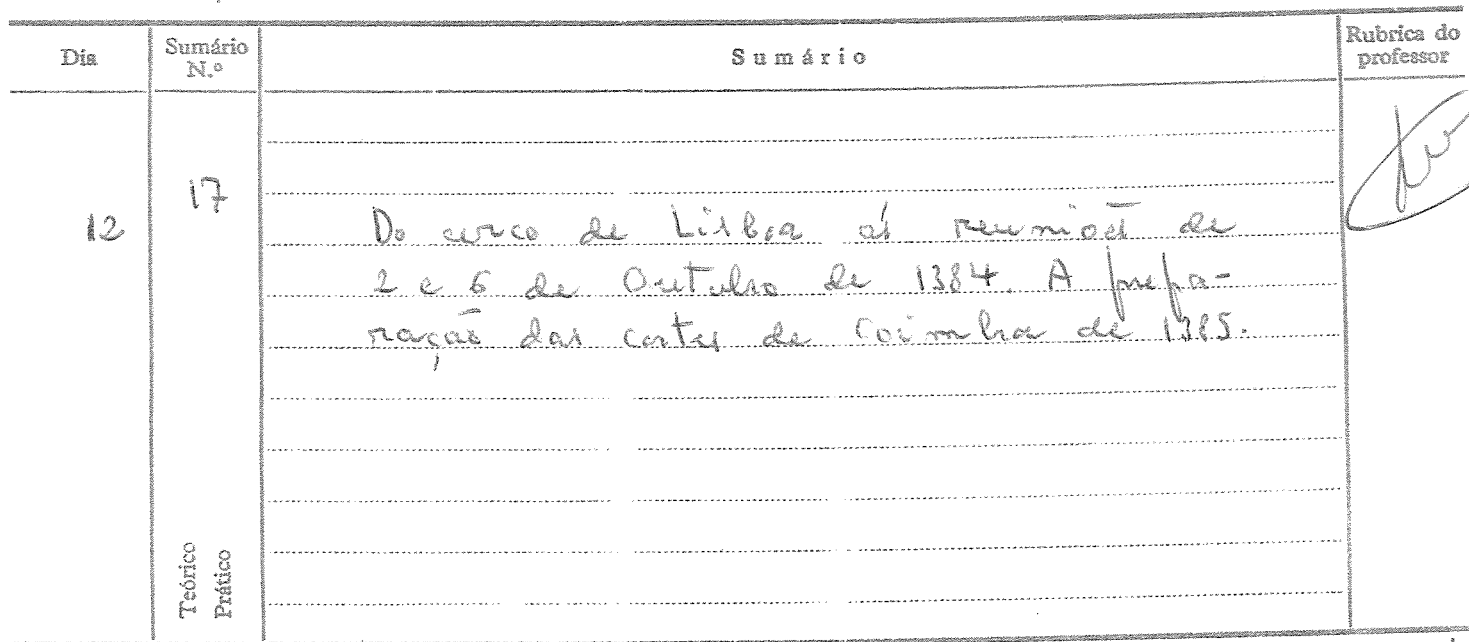 Dia Sumário N.º Sumário Rubrica do professor
12 17
Do cerco de Lisboa ás reuniões de
2 e 6 de Outubro de 1384. A prepa-
ração das cortes de Coimbra de 1385.
Teórico
Prático